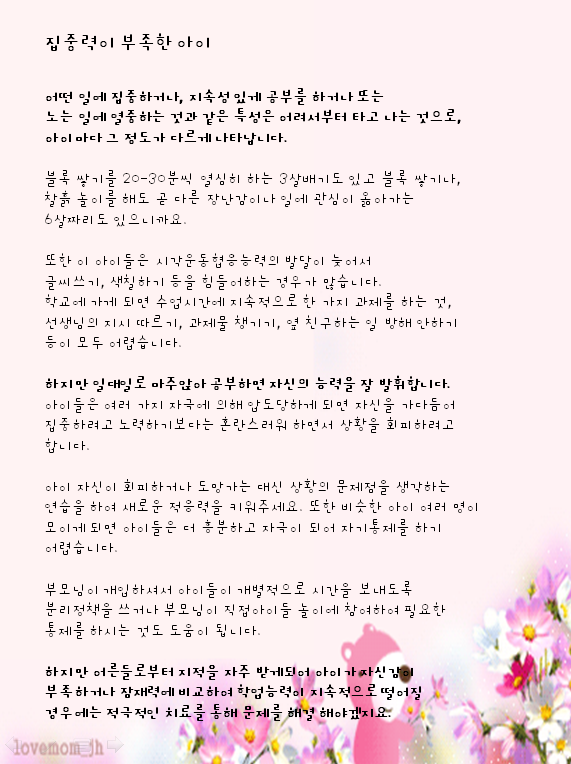 집중력이 부족한 아이
어떤 일에 집중하거나, 지속성 있게 공부를 하거나 또는
노는 일에 열중하는 것과 같은 특성은 어려서부터 타고 나는 것으로,
아이마다 그 정도가 다르게 나타납니다.
블록 쌓기를 20-30분씩 열심히 하는 3살배기도 있고 블록 쌓기나,
찰흙 놀이를 해도 곧 다른 장난감이나 일에 관심이 옮아가는
6살짜리도 있으니까요.
또한 이 아이들은 시각운동협응능력의 발달이 늦어서
글씨쓰기, 색칠하기 등을 힘들어하는 경우가 많습니다.
학교에 가게 되면 수업시간에 지속적으로 한 가지 과제를 하는 것,
선생님의 지시 따르기, 과제물 챙기기, 옆 친구하는 일 방해 안하기
등이 모두 어렵습니다.
하지만 일대일로 마주앉아 공부하면 자신의 능력을 잘 발휘합니다.
아이들은 여러 가지 자극에 의해 압도당하게 되면 자신을 가다듬어
집중하려고 노력하기보다는 혼란스러워 하면서 상황을 회피하려고
합니다.
아이 자신이 회피하거나 도망가는 대신 상황의 문제점을 생각하는
연습을 하여 새로운 적응력을 키워주세요. 또한 비슷한 아이 여러 명이
모이게 되면 아이들은 더 흥분하고 자극이 되어 자기통제를 하기
어렵습니다.
부모님이 개입하셔서 아이들이 개별적으로 시간을 보내도록
분리정책을 쓰거나 부모님이 직접아이들 놀이에 참여하여 필요한
통제를 하시는 것도 도움이 됩니다.
하지만 어른들로부터 지적을 자주 받게되어 아이가 자신감이
부족하거나 잠재력에 비교하여 학업능력이 지속적으로 떨어질
경우에는 적극적인 치료를 통해 문제를 해결 해야겠지요.
lovemom_jh